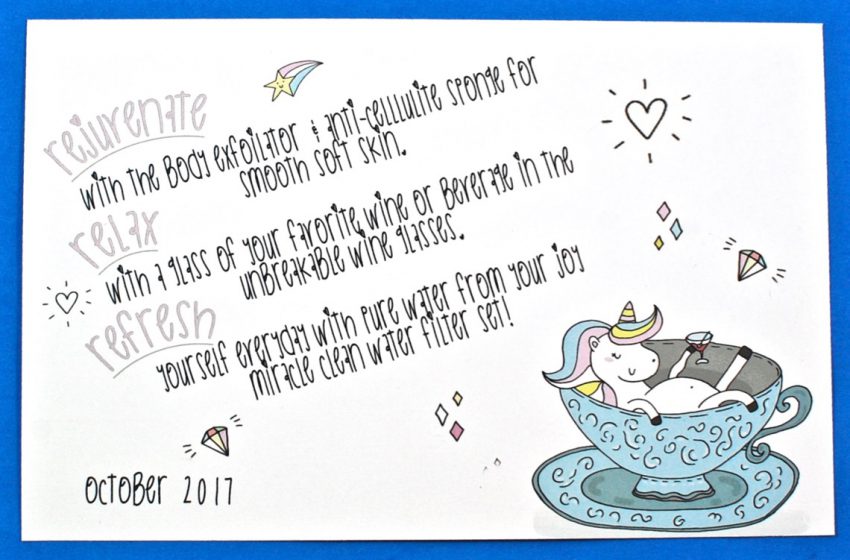 rejuvenate
with the Body exfoliator & anti-celllulite sponge for
smooth soft skin.
relax
with a glass of your favorite wine or Beverage in the
unBreakaBle wine glasses.
refresh
yourself everyday with pure water from your joy
miracle clean water filter set!
OctoBer 2017